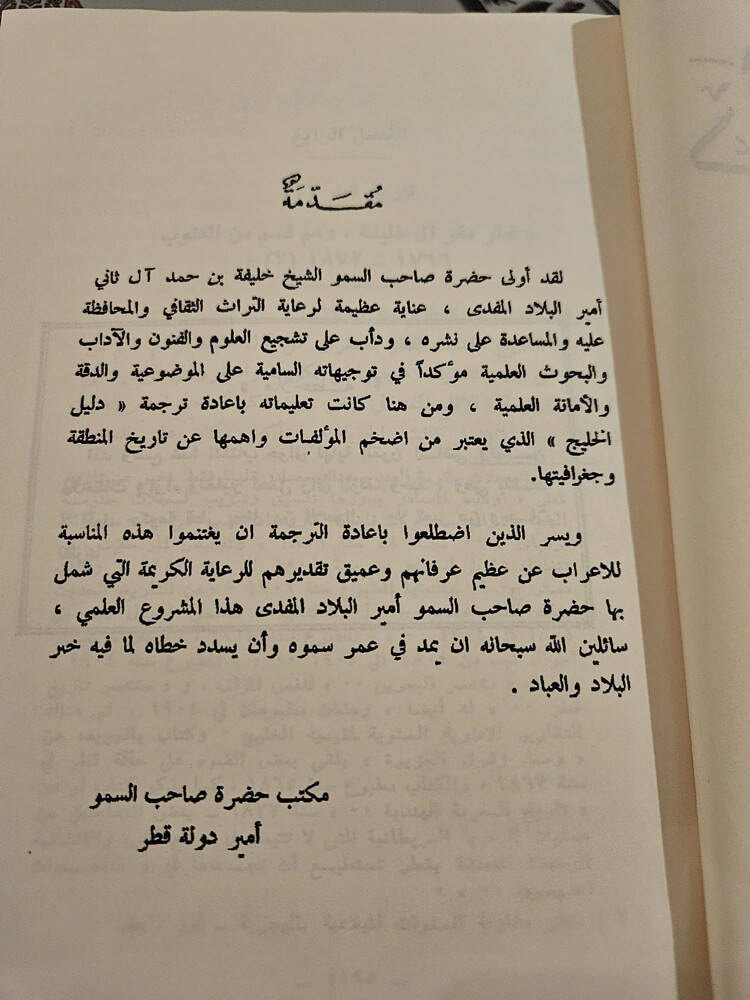 مُقَدّمَة
لقد أولى حضرة صاحب السمو الشيخ خليفة بن حمد آل ثاني
أمير البلاد المفدى ، عناية عظيمة لرعاية التراث الثقافي والمحافظة
عليه والمساعدة على نشره ، ودأب على تشجيع العلوم والفنون والآداب
والبحوث العلمية مؤكداً في توجيهاته السامية على الموضوعية والدقة
والأمانة العلمية ، ومن هنا كانت تعليماته باعادة ترجمة « دليل
الخليج » الذي يعتبر من اضخم المؤلفات واهمها عن تاريخ المنطقة
وجغرافيتها.
ويسر الذين اضطلعوا باعادة الترجمة ان يغتنموا هذه المناسبة
للاعراب عن عظيم عرفانهم وعميق تقديرهم للرعاية الكريمة التي شمل
بها حضرة صاحب السمو أمير البلاد المفدى هذا المشروع العلمي ،
سائلين الله سبحانه ان يمد في عمر سموه وأن يسدد خطاه لما فيه خير
البلاد والعباد .
مكتب حضرة صاحب السمو
أمير دولة قطر